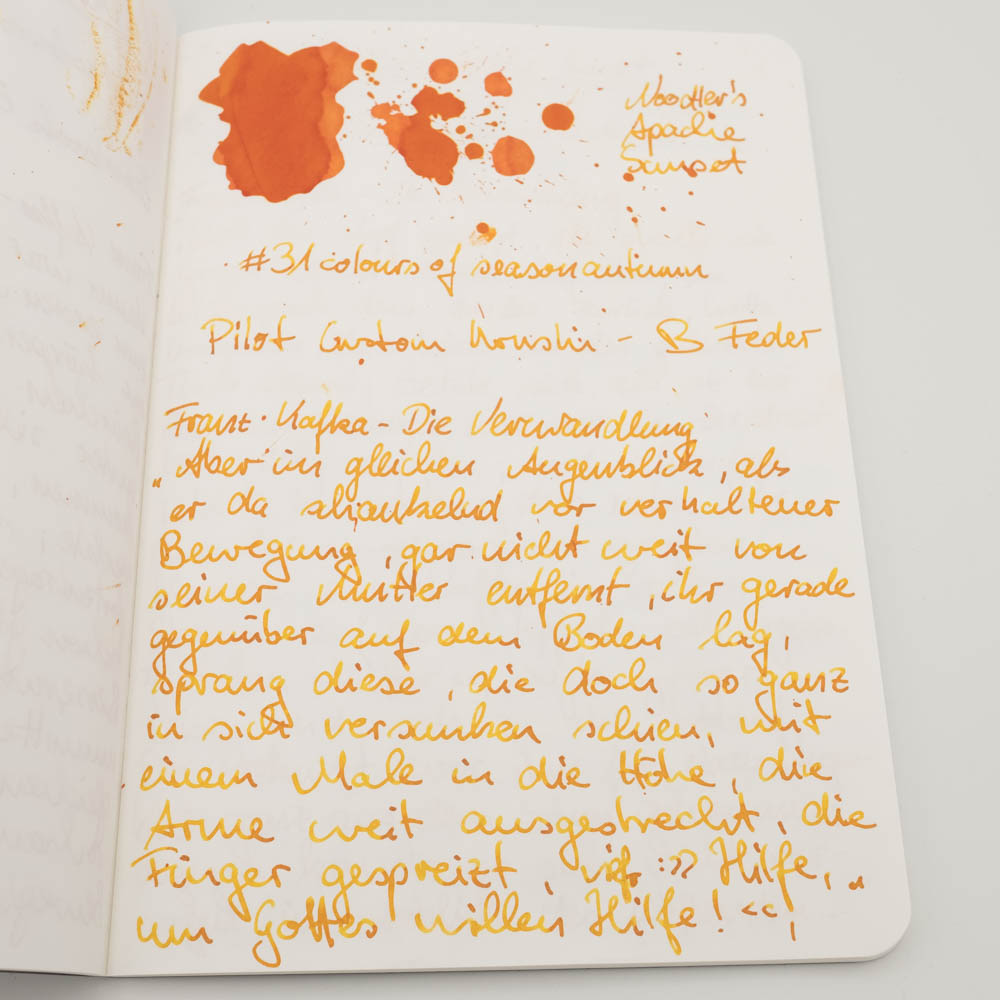 Noodler's
Apache
Sunset
#31coloursofseasonautumn
Pilot Custom Urushi - B Feder
Franz Kafka - Die Verwandlung
„Aber im gleichen Augenblick, als
er da schaukelnd vor verhaltener
Bewegung, gar nicht weit von
seiner Mutter entfernt, ihr gerade
gegenüber auf dem Boden lag,
sprang diese, die doch so ganz
in sich versunken schien, mit
einem Male in die Höhe, die
Arme weit ausgestreckt, die
Finger gespreizt, rief: »Hilfe,
um Gottes willen Hilfe!«,